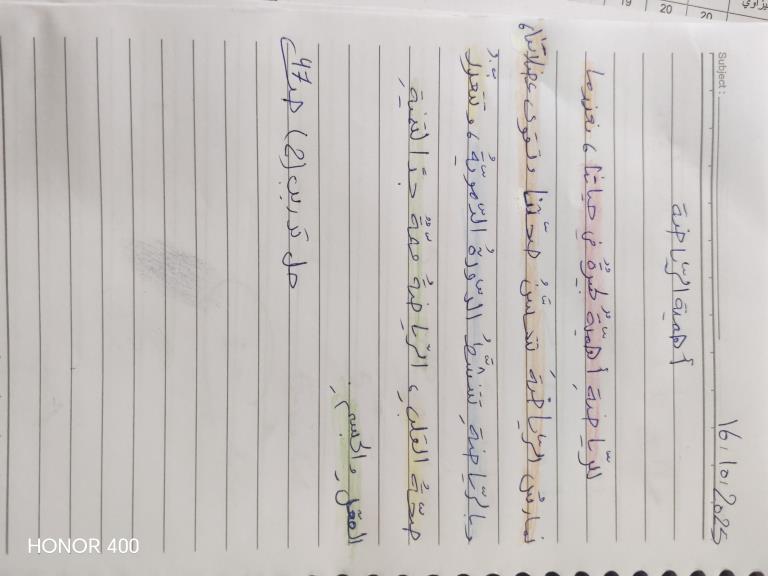 Subject:
16.10.2025
أهمية الرياضة
للرياضة أهمية كبيرة في حياتنا، فعندما
نمارس الرياضة تتحسن صحتنا وتتقوى عضلاتنا
وبالرياضة تنشط الدورة الدموية، وتتعزز
صحة القلب، الرياضة مهمة جدا لتنمية
العقل والجسم.
حل تدريب (2) ص47
19
20
20
HONOR 400